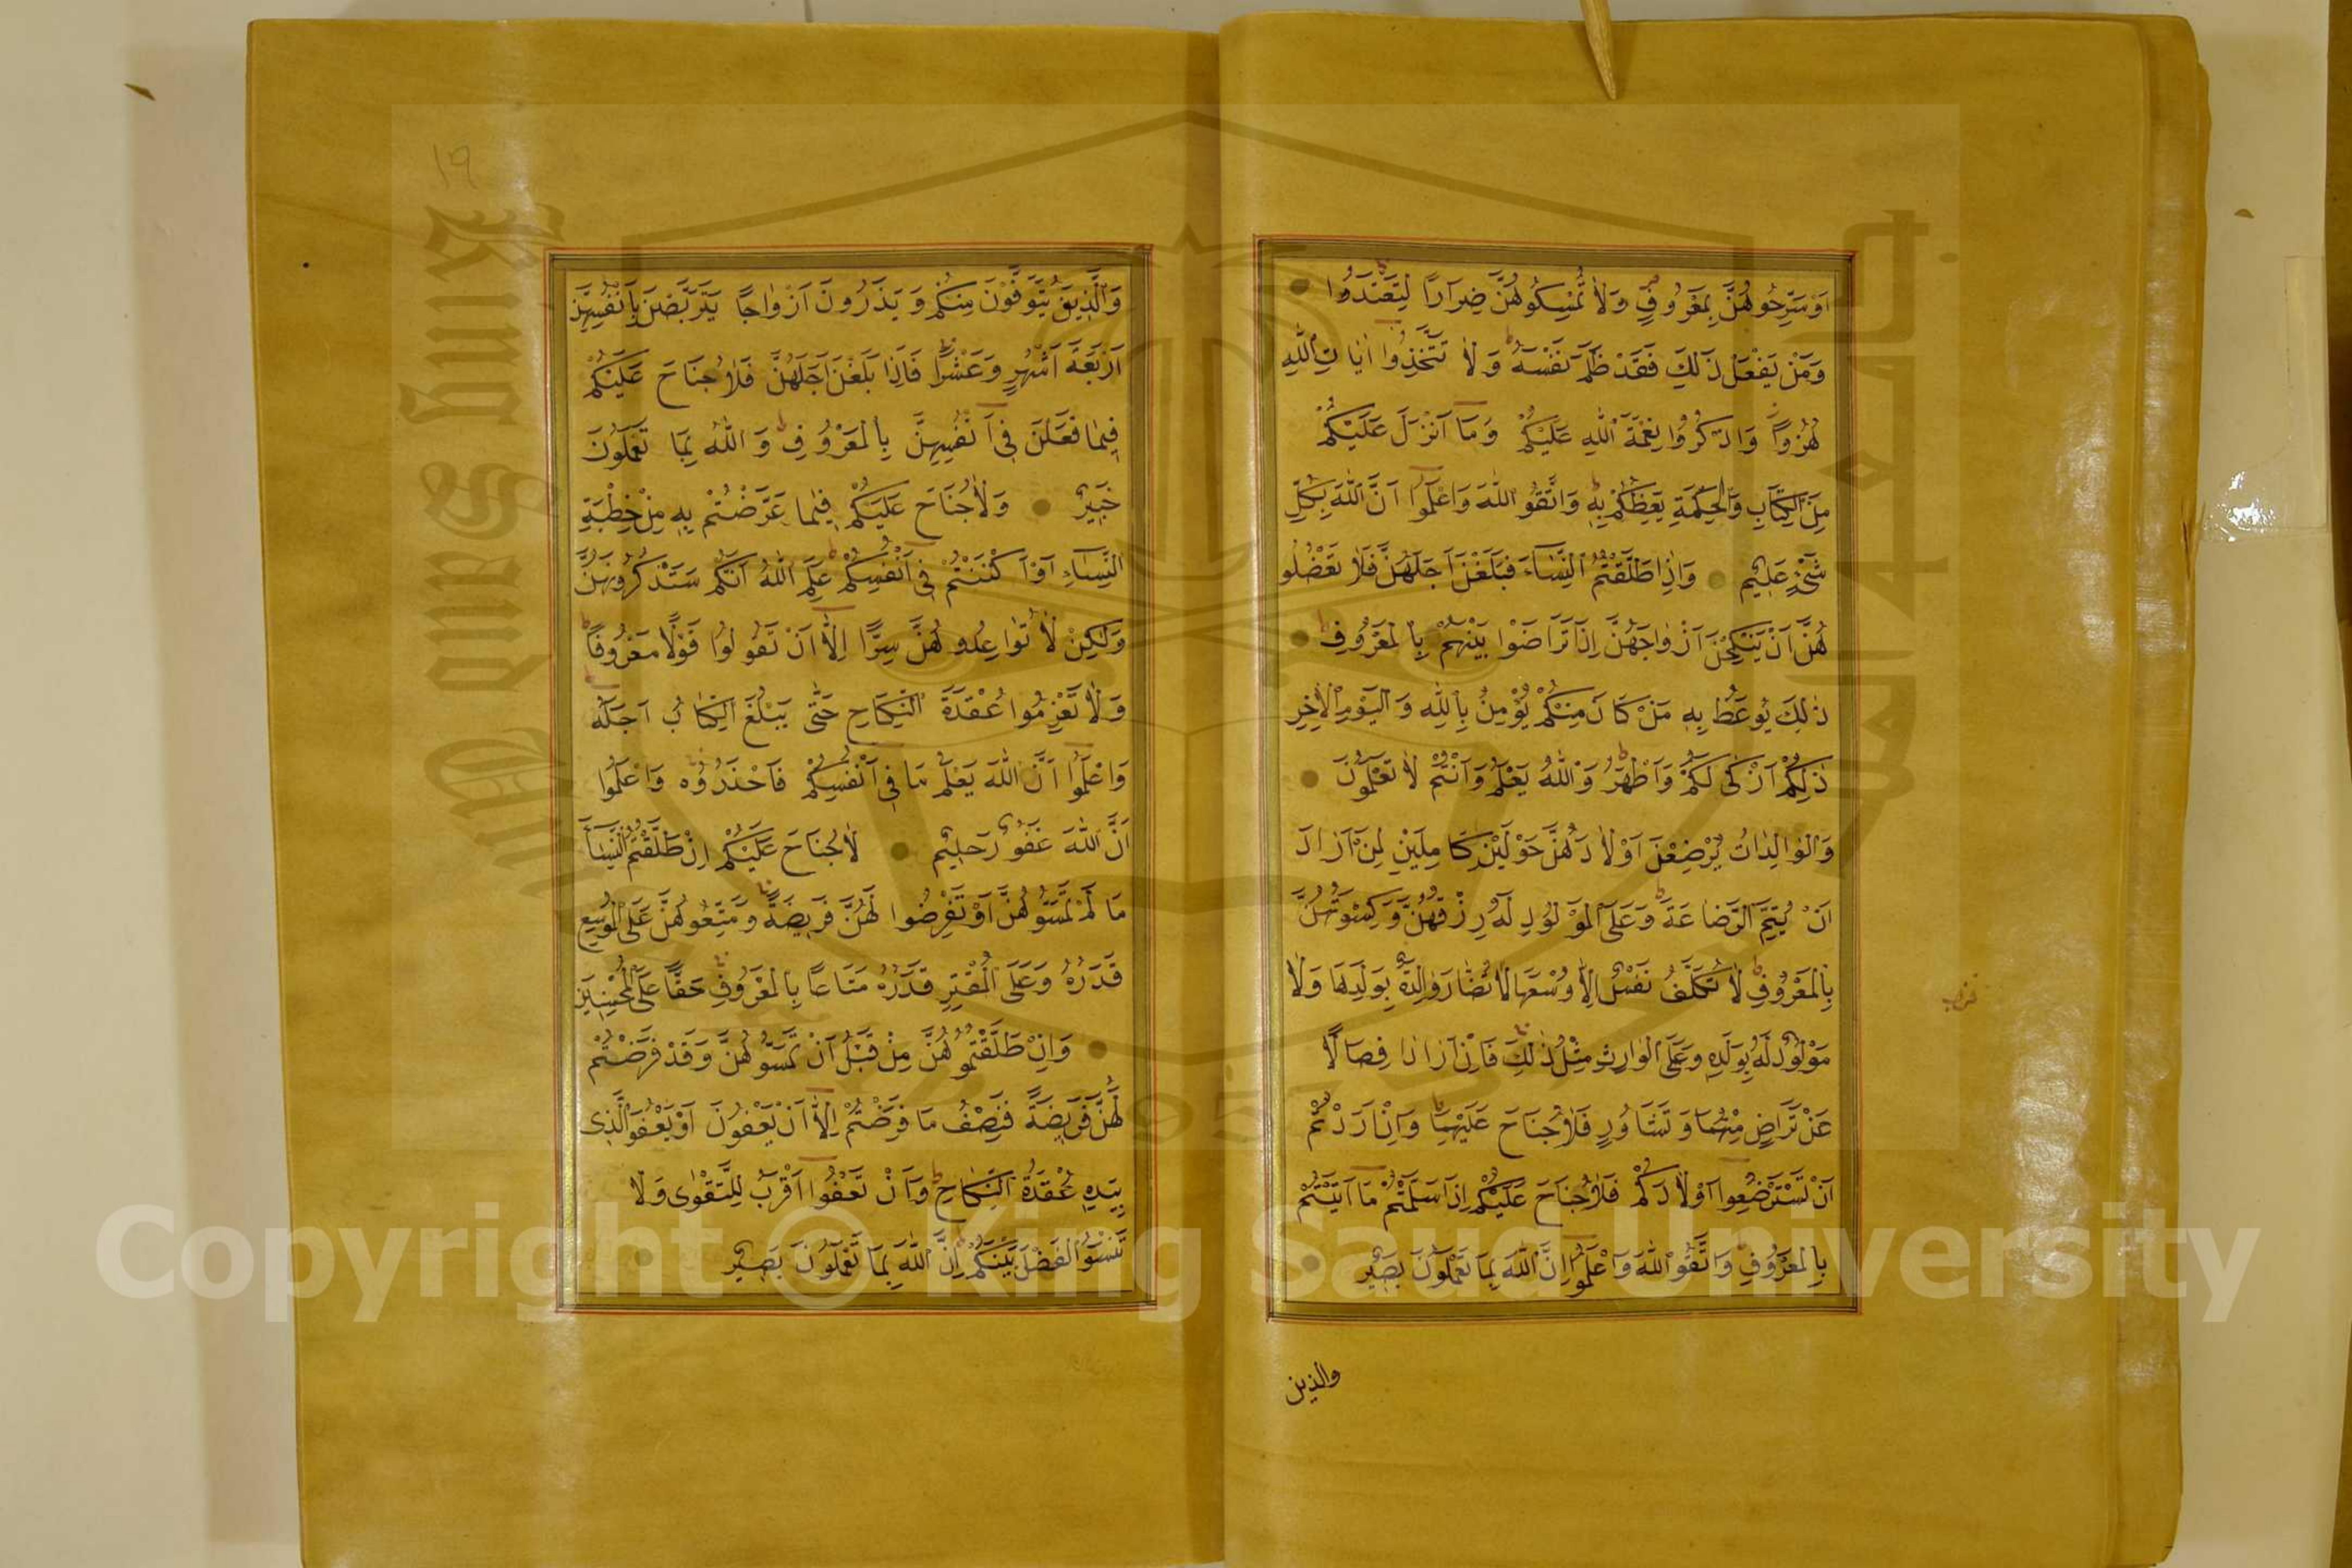 اَوْ سَرِّحُوهُنَّ بِمَعْرُوفٍ وَلَا تُمْسِكُوهُنَّ ضِرَارًا لِتَعْتَدُوا
وَمَنْ يَفْعَلْ ذٰلِكَ فَقَدْ ظَلَمَ نَفْسَهُ وَلَا تَتَّخِذُوا اٰيَاتِ اللّٰهِ
هُزُوًا وَاذْكُرُوا نِعْمَةَ اللّٰهِ عَلَيْكُمْ وَمَا اَنْزَلَ عَلَيْكُمْ
مِنَ الْكِتَابِ وَالْحِكْمَةِ يَعِظُكُمْ بِهِ وَاتَّقُوا اللّٰهَ وَاعْلَمُوا اَنَّ اللّٰهَ بِكُلِّ
شَيْءٍ عَلِيمٌ وَاِذَا طَلَّقْتُمُ النِّسَاءَ فَبَلَغْنَ اَجَلَهُنَّ فَلَا تَعْضُلُو
هُنَّ اَنْ يَنْكِحْنَ اَزْوَاجَهُنَّ اِذَا تَرَاضَوْا بَيْنَهُمْ بِالْمَعْرُوفِ
ذٰلِكَ يُوعَظُ بِهِ مَنْ كَانَ مِنْكُمْ يُؤْمِنُ بِاللّٰهِ وَالْيَوْمِ الْاٰخِرِ
ذٰلِكُمْ اَزْكٰى لَكُمْ وَاَطْهَرُ وَاللّٰهُ يَعْلَمُ وَاَنْتُمْ لَا تَعْلَمُونَ
وَالْوَالِدَاتُ يُرْضِعْنَ اَوْلَادَهُنَّ حَوْلَيْنِ كَامِلَيْنِ لِمَنْ اَرَادَ
اَنْ يُتِمَّ الرَّضَاعَةَ وَعَلَى الْمَوْلُودِ لَهُ رِزْقُهُنَّ وَكِسْوَتُهُنَّ
بِالْمَعْرُوفِ لَا تُكَلَّفُ نَفْسٌ اِلَّا وُسْعَهَا لَا تُضَارَّ وَالِدَةٌ بِوَلَدِهَا وَلَا
مَوْلُودٌ لَهُ بِوَلَدِهِ وَعَلَى الْوَارِثِ مِثْلُ ذٰلِكَ فَاِنْ اَرَادَا فِصَالًا
عَنْ تَرَاضٍ مِنْهُمَا وَتَشَاوُرٍ فَلَا جُنَاحَ عَلَيْهِمَا وَاِنْ اَرَدْتُمْ
اَنْ تَسْتَرْضِعُوا اَوْلَادَكُمْ فَلَا جُنَاحَ عَلَيْكُمْ اِذَا سَلَّمْتُمْ مَا اٰتَيْتُمْ
بِالْمَعْرُوفِ وَاتَّقُوا اللّٰهَ وَاعْلَمُوا اِنَّ اللّٰهَ بِمَا تَعْمَلُونَ بَصِيرٌ
والذين
١٩
وَالَّذِينَ يُتَوَفَّوْنَ مِنْكُمْ وَيَذَرُونَ اَزْوَاجًا يَتَرَبَّصْنَ بِاَنْفُسِهِنَّ
اَرْبَعَةَ اَشْهُرٍ وَعَشْرًا فَاِذَا بَلَغْنَ اَجَلَهُنَّ فَلَا جُنَاحَ عَلَيْكُمْ
فِيمَا فَعَلْنَ فِي اَنْفُسِهِنَّ بِالْمَعْرُوفِ وَاللّٰهُ بِمَا تَعْمَلُونَ
خَبِيرٌ وَلَا جُنَاحَ عَلَيْكُمْ فِيمَا عَرَّضْتُمْ بِهِ مِنْ خِطْبَةِ
النِّسَاءِ اَوْ اَكْنَنْتُمْ فِي اَنْفُسِكُمْ عَلِمَ اللّٰهُ اَنَّكُمْ سَتَذْكُرُونَهُنَّ
وَلٰكِنْ لَا تُوَاعِدُوهُنَّ سِرًّا اِلَّا اَنْ تَقُولُوا قَوْلًا مَعْرُوفًا
وَلَا تَعْزِمُوا عُقْدَةَ النِّكَاحِ حَتّٰى يَبْلُغَ الْكِتَابُ اَجَلَهُ
وَاعْلَمُوا اَنَّ اللّٰهَ يَعْلَمُ مَا فِي اَنْفُسِكُمْ فَاحْذَرُوهُ وَاعْلَمُوا
اَنَّ اللّٰهَ غَفُورٌ حَلِيمٌ لَا جُنَاحَ عَلَيْكُمْ اِنْ طَلَّقْتُمُ النِّسَاءَ
مَا لَمْ تَمَسُّوهُنَّ اَوْ تَفْرِضُوا لَهُنَّ فَرِيضَةً وَمَتِّعُوهُنَّ عَلَى الْمُوسِعِ
قَدَرُهُ وَعَلَى الْمُقْتِرِ قَدَرُهُ مَتَاعًا بِالْمَعْرُوفِ حَقًّا عَلَى الْمُحْسِنِينَ
وَاِنْ طَلَّقْتُمُوهُنَّ مِنْ قَبْلِ اَنْ تَمَسُّوهُنَّ وَقَدْ فَرَضْتُمْ
لَهُنَّ فَرِيضَةً فَنِصْفُ مَا فَرَضْتُمْ اِلَّا اَنْ يَعْفُونَ اَوْ يَعْفُوَ الَّذِي
بِيَدِهِ عُقْدَةُ النِّكَاحِ وَاَنْ تَعْفُوا اَقْرَبُ لِلتَّقْوٰى وَلَا
تَنْسَوُا الْفَضْلَ بَيْنَكُمْ اِنَّ اللّٰهَ بِمَا تَعْمَلُونَ بَصِيرٌ
Copyright © King Saud University